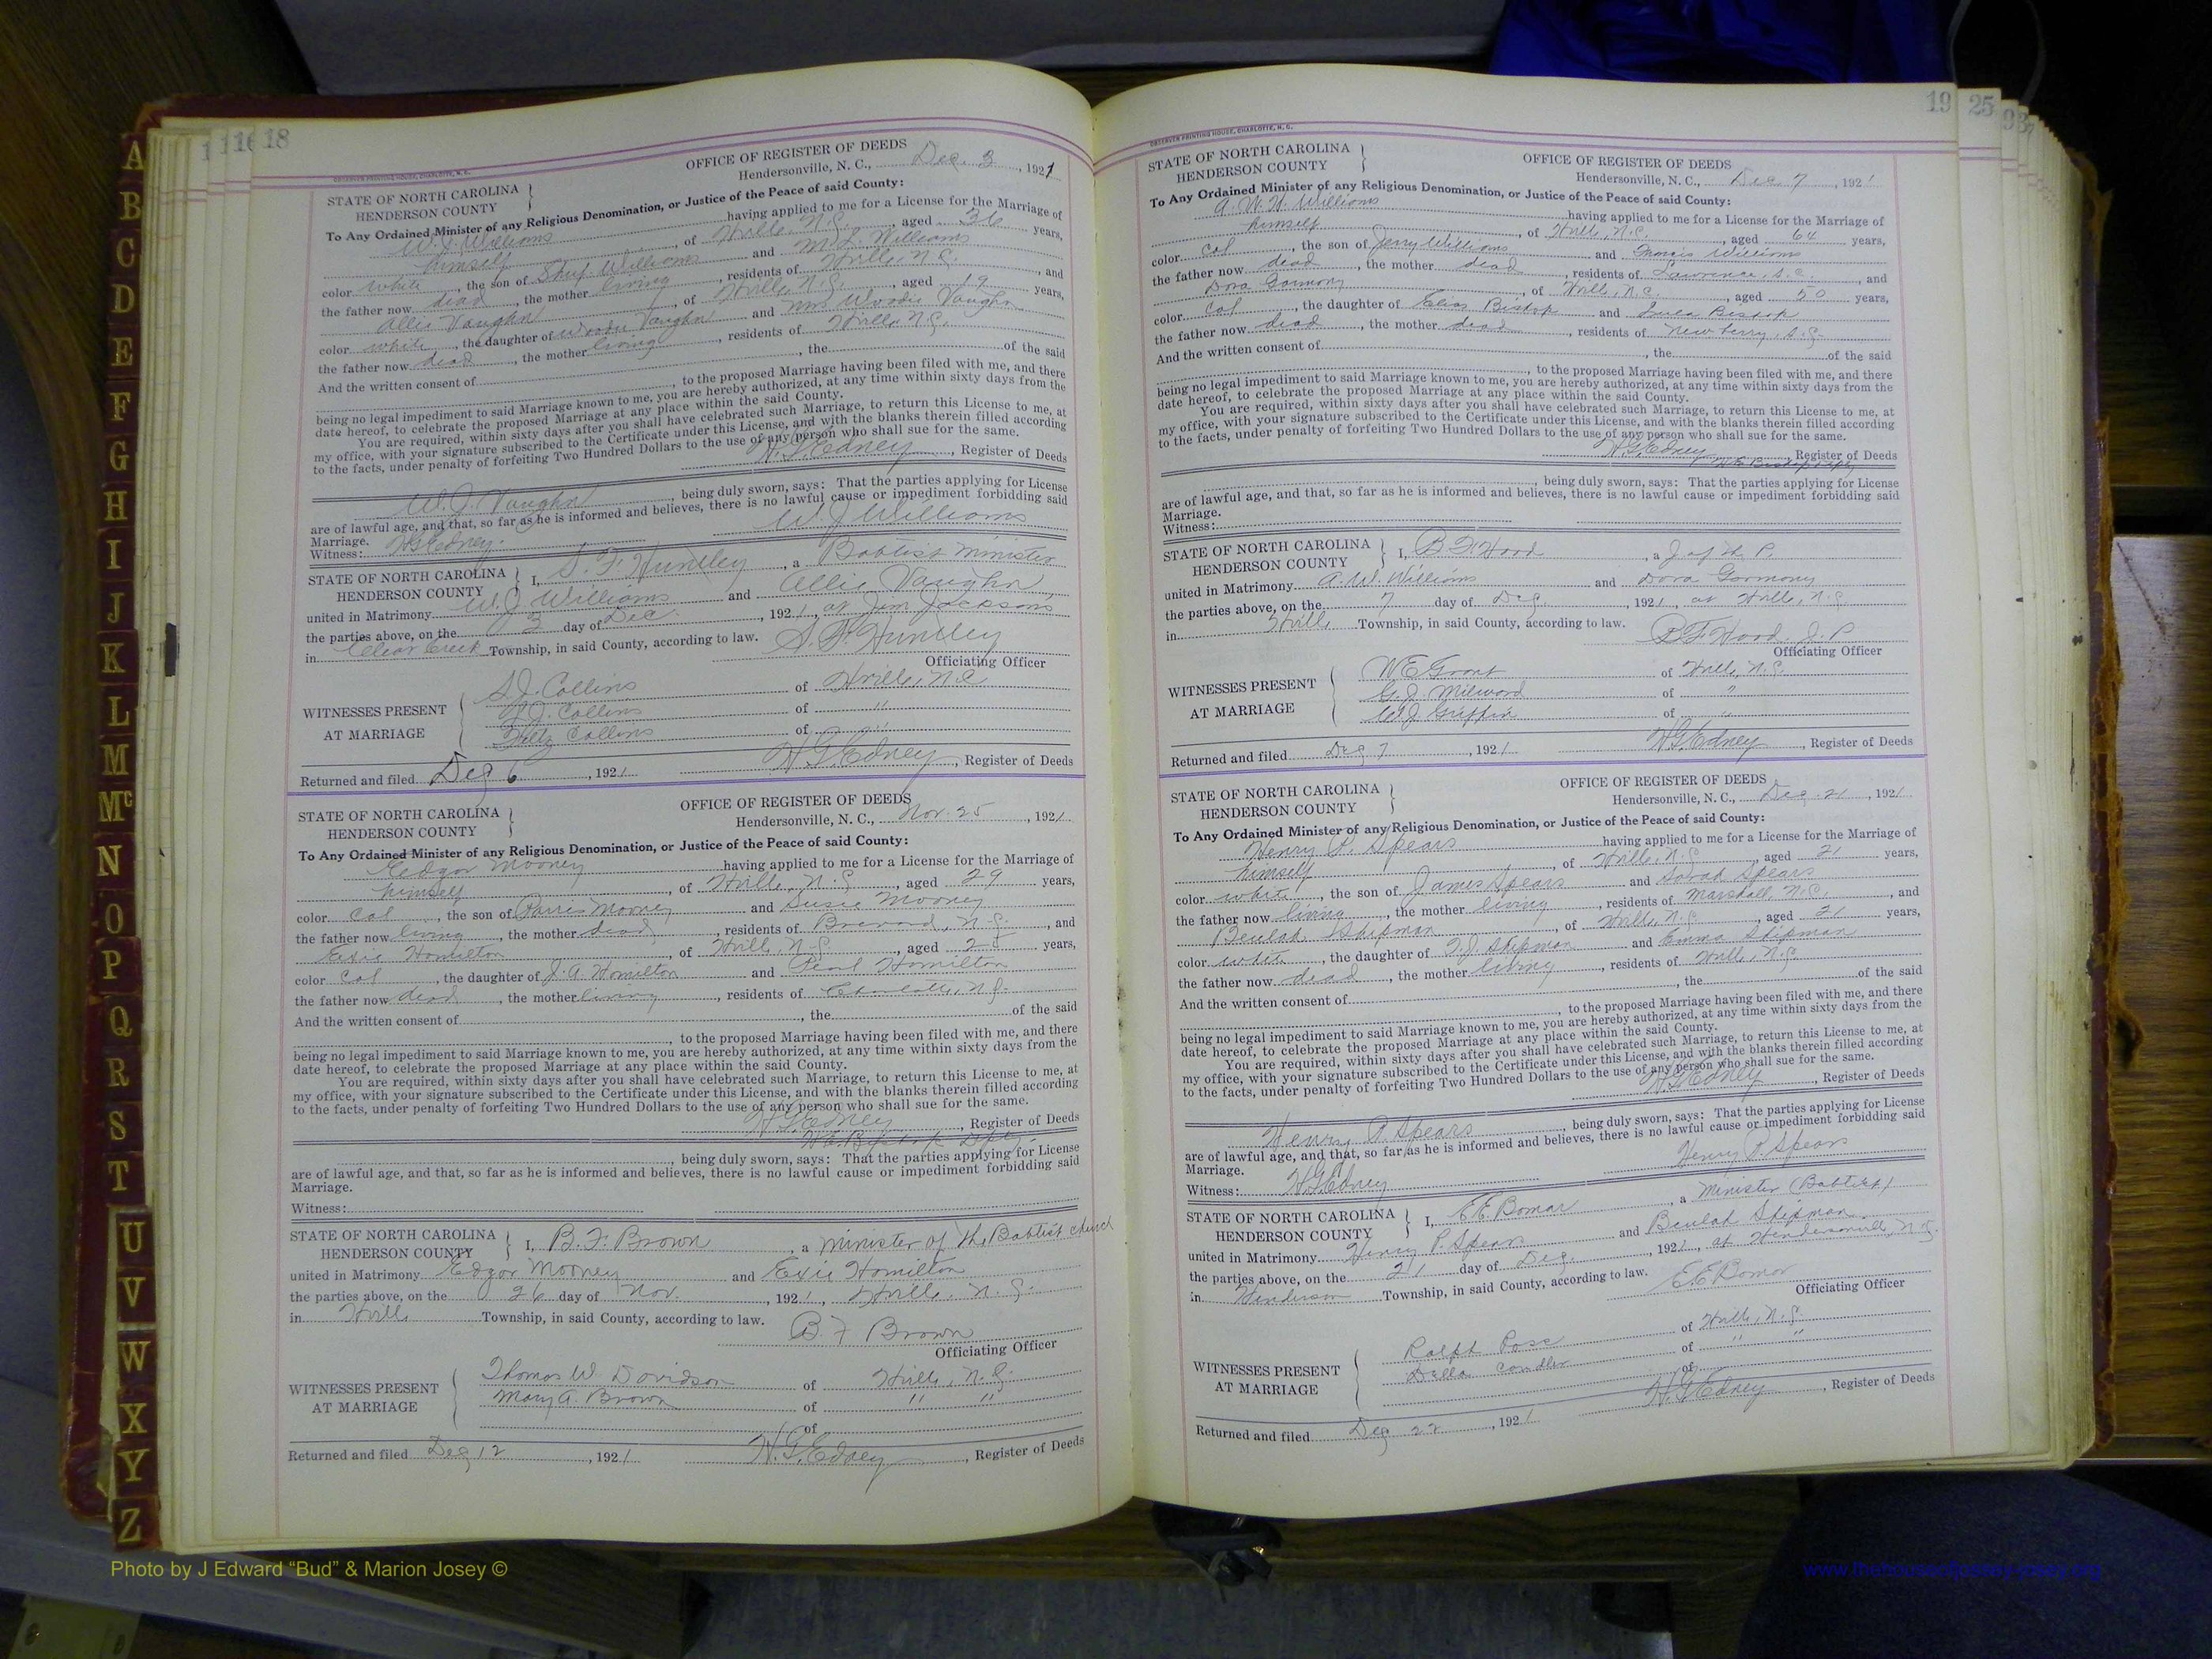 A
B
C
D
E
F
G
H
I
J
K
L
M
Mc
N
O
P
Q
R
S
T
U
V
W
X
Y
Z
18
OBSERVER PRINTING HOUSE, CHARLOTTE, N. C.
STATE OF NORTH CAROLINA
HENDERSON COUNTY
OFFICE OF REGISTER OF DEEDS
Hendersonville, N. C., Dec. 3, 1921
To Any Ordained Minister of any Religious Denomination, or Justice of the Peace of said County:
W. J. Williams having applied to me for a License for the Marriage of
himself, of Hville, N.C., aged 36 years,
color white, the son of Williams and M. L. Williams
the father now dead, the mother living, residents of Hville, N.C., and
Allie Vaughn, of Hville, N.C., aged 19 years,
color white, the daughter of Woodie Vaughn and Mrs Woodie Vaughn
the father now dead, the mother living, residents of Hville, N.C.
And the written consent of, the of the said
, to the proposed Marriage having been filed with me, and there
being no legal impediment to said Marriage known to me, you are hereby authorized, at any time within sixty days from the
date hereof, to celebrate the proposed Marriage at any place within the said County.
You are required, within sixty days after you shall have celebrated such Marriage, to return this License to me, at
my office, with your signature subscribed to the Certificate under this License, and with the blanks therein filled according
to the facts, under penalty of forfeiting Two Hundred Dollars to the use of any person who shall sue for the same.
H. G. Edney, Register of Deeds
W. J. Vaughn, being duly sworn, says: That the parties applying for License
are of lawful age, and that, so far as he is informed and believes, there is no lawful cause or impediment forbidding said
Marriage. W J Williams
Witness: H G Edney.
STATE OF NORTH CAROLINA
HENDERSON COUNTY
I, S. F. Huntley, a Babtist Minister
united in Matrimony W. J Williams and Allie Vaughn,
the parties above, on the 3 day of Dec., 1921, at Jim Jacksons
in Clear Creek Township, in said County, according to law.
S. F. Huntley
Officiating Officer
WITNESSES PRESENT
AT MARRIAGE
S. J. Collins of Hville, N.C
J. Collins of "
Collins of "
Returned and filed Dec 6, 1921 H. G. Edney, Register of Deeds
STATE OF NORTH CAROLINA
HENDERSON COUNTY
OFFICE OF REGISTER OF DEEDS
Hendersonville, N. C., Nov. 25, 1921
To Any Ordained Minister of any Religious Denomination, or Justice of the Peace of said County:
Edgar Mooney having applied to me for a License for the Marriage of
himself, of Hville, N.C, aged 29 years,
color Col, the son of Parris Mooney and Susie Mooney
the father now living, the mother dead, residents of Brevard, N.C., and
Exie Hamilton, of Hville, N.C, aged 25 years,
color Col, the daughter of J. A. Hamilton and Pearl Hamilton
the father now dead, the mother living, residents of Charlotte, N.C.
And the written consent of, the of the said
, to the proposed Marriage having been filed with me, and there
being no legal impediment to said Marriage known to me, you are hereby authorized, at any time within sixty days from the
date hereof, to celebrate the proposed Marriage at any place within the said County.
You are required, within sixty days after you shall have celebrated such Marriage, to return this License to me, at
my office, with your signature subscribed to the Certificate under this License, and with the blanks therein filled according
to the facts, under penalty of forfeiting Two Hundred Dollars to the use of any person who shall sue for the same.
H. G Edney, Register of Deeds
, being duly sworn, says: That the parties applying for License
are of lawful age, and that, so far as he is informed and believes, there is no lawful cause or impediment forbidding said
Marriage.
Witness:
STATE OF NORTH CAROLINA
HENDERSON COUNTY
I, B. F. Brown, a minister of the Babtist church
united in Matrimony Edgar Mooney and Exie Hamilton
the parties above, on the 26 day of Nov., 1921, Hville, N.C.
in Hville Township, in said County, according to law.
B. F Brown
Officiating Officer
WITNESSES PRESENT
AT MARRIAGE
Thomas W. Davidson of Hville, N.C.
Mary A. Brown of " "
of
Returned and filed Dec 12, 1921. H. G. Edney, Register of Deeds
19 25
OBSERVER PRINTING HOUSE, CHARLOTTE, N. C.
STATE OF NORTH CAROLINA
HENDERSON COUNTY
OFFICE OF REGISTER OF DEEDS
Hendersonville, N. C., Dec 7, 1921
To Any Ordained Minister of any Religious Denomination, or Justice of the Peace of said County:
A. W. H. Williams having applied to me for a License for the Marriage of
himself, of Hville, N.C., aged 64 years,
color Col, the son of Jerry Williams and Williams
the father now dead, the mother dead, residents of Lawrence, S.C., and
Dora Gormony, of Hville, N.C., aged 50 years,
color Col, the daughter of Elias Bishop and Bishop
the father now dead, the mother dead, residents of Newberry, S.C.
And the written consent of, the of the said
, to the proposed Marriage having been filed with me, and there
being no legal impediment to said Marriage known to me, you are hereby authorized, at any time within sixty days from the
date hereof, to celebrate the proposed Marriage at any place within the said County.
You are required, within sixty days after you shall have celebrated such Marriage, to return this License to me, at
my office, with your signature subscribed to the Certificate under this License, and with the blanks therein filled according
to the facts, under penalty of forfeiting Two Hundred Dollars to the use of any person who shall sue for the same.
H G Edney, Register of Deeds
, being duly sworn, says: That the parties applying for License
are of lawful age, and that, so far as he is informed and believes, there is no lawful cause or impediment forbidding said
Marriage.
Witness:
STATE OF NORTH CAROLINA
HENDERSON COUNTY
I, B. F. Hood, a J of the P.
united in Matrimony A. W. Williams and Dora Gormony
the parties above, on the 7 day of Dec., 1921, at Hville, N.C.
in Hville Township, in said County, according to law.
B. F. Hood J. P
Officiating Officer
WITNESSES PRESENT
AT MARRIAGE
W E Grant of Hville, N.C.
G. J. Milwood of "
W. J. Griffin of "
Returned and filed Dec 7, 1921 H G Edney, Register of Deeds
STATE OF NORTH CAROLINA
HENDERSON COUNTY
OFFICE OF REGISTER OF DEEDS
Hendersonville, N. C., Dec. 21, 1921
To Any Ordained Minister of any Religious Denomination, or Justice of the Peace of said County:
Henry P. Spears having applied to me for a License for the Marriage of
himself, of Hville, N.C, aged 21 years,
color white, the son of James Spears and Sarah Spears
the father now living, the mother living, residents of Marshall, N.C., and
Beulah Shipman, of Hville, N.C, aged 21 years,
color white, the daughter of T. J. Shipman and Emma Shipman
the father now dead, the mother living, residents of Hville, N.C
And the written consent of, the of the said
, to the proposed Marriage having been filed with me, and there
being no legal impediment to said Marriage known to me, you are hereby authorized, at any time within sixty days from the
date hereof, to celebrate the proposed Marriage at any place within the said County.
You are required, within sixty days after you shall have celebrated such Marriage, to return this License to me, at
my office, with your signature subscribed to the Certificate under this License, and with the blanks therein filled according
to the facts, under penalty of forfeiting Two Hundred Dollars to the use of any person who shall sue for the same.
H. G. Edney, Register of Deeds
Henry P. Spears, being duly sworn, says: That the parties applying for License
are of lawful age, and that, so far as he is informed and believes, there is no lawful cause or impediment forbidding said
Marriage. Henry P. Spears
Witness: H G Edney
STATE OF NORTH CAROLINA
HENDERSON COUNTY
I, E. E. Bomar, a Minister (Babtist)
united in Matrimony Henry P. Spears and Beulah Shipman
the parties above, on the 21 day of Dec., 1921, at Hendersonville, N.C.
in Henderson Township, in said County, according to law.
E. E Bomar
Officiating Officer
WITNESSES PRESENT
AT MARRIAGE
Ralph Pose of Hville, N.C.
Della Candler of " "
of
Returned and filed Dec 22, 1921 H. G. Edney, Register of Deeds
Photo by J Edward “Bud” & Marion Josey ©